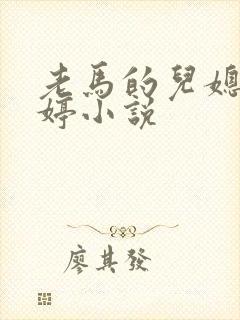 老馬的兒媳
婷小説
廖其發